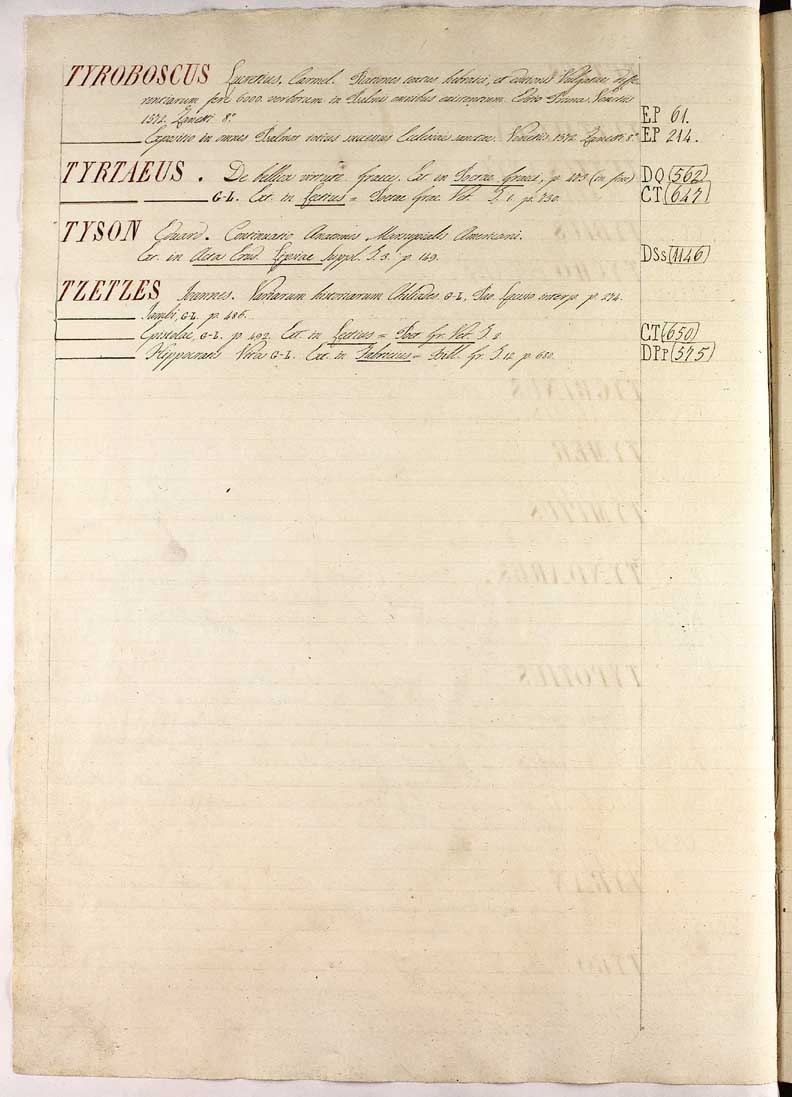 TYROBOSCUS Lucretius, Carmel. Rationes textus hebraei, et editionis Vulgatae, diffe-
rentiarum fere 6000. verborum in Psalmis omnibus existentium. Editio Prima. Venetiis
1572. Zanetti 8.° EP 61.
Expositio in omnes Psalmos totius Ecclesiae Venetiis. 1572. Zanetti. 8.° EP 214.
TYRTAEUS. De bellica virtute graece. Ext. in Poetae Graeci, p. (in fine) DO (562)
G-L. Ext. in Lectius = Poetae Graec. Vet. T. 1. p. 730. CT (647)
TYSON Eduard. Continuatio Anatomis Marsupialis Americani.
Ext. in Acta Erud. Lipsiae Suppl. T. 3.° p. 149. DSs (1146)
TZETZES Joannes. Variarum historiarum Chiliades. G-L, Paulo Lacisio interp. p. 274.
Jambi, G-L. p. 486.
Epistolae, G-L. p. 492. Ext. in Lectius = Poet. Gr. Vet. T. 2. CT (650)
Hippocratis Vita G-L. Ext. in Fabricius = Bibl. Gr. T. 12. p. 680. DPp (575)